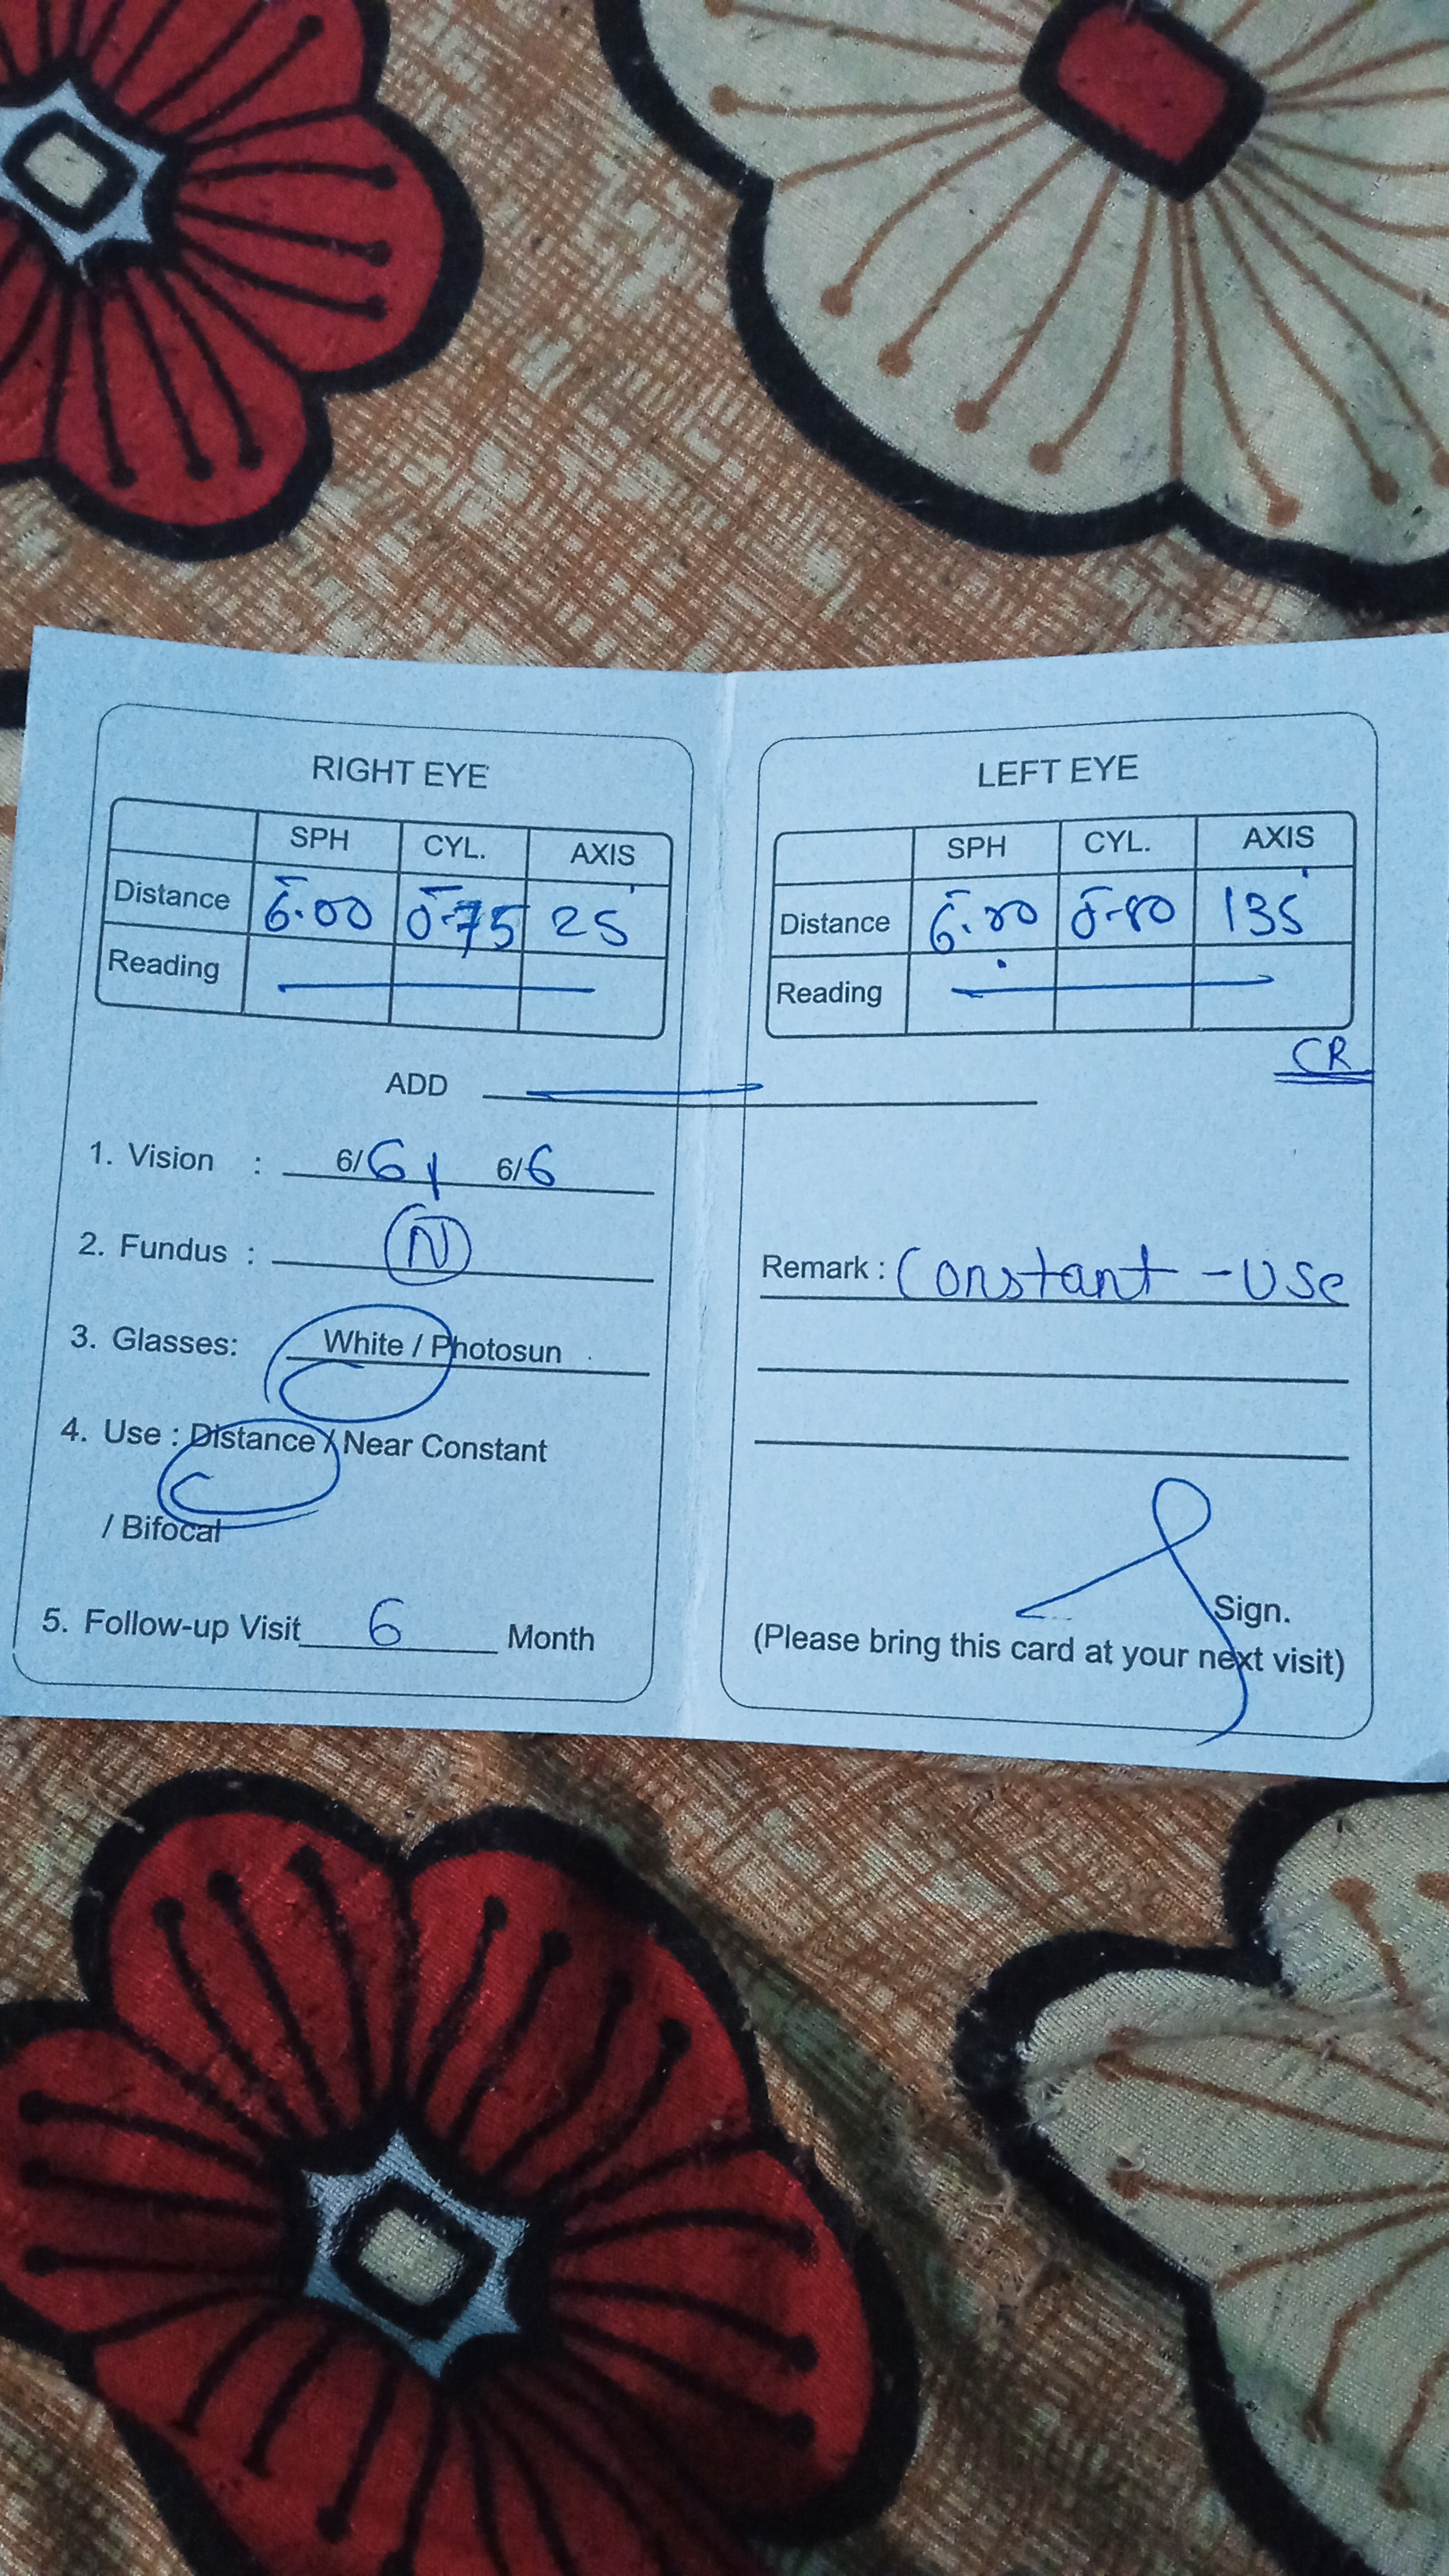 RIGHT EYE
SPH CYL. AXIS
Distance 0.75 25
Reading
ADD
1. Vision : 6/6, 6/6
2. Fundus : N
3. Glasses: White / Photosun
4. Use : Distance / Near Constant
/ Bifocal
5. Follow-up Visit 6 Month
LEFT EYE
SPH CYL. AXIS
Distance 135
Reading
CR
Remark : Constant - Use
Sign.
(Please bring this card at your next visit)